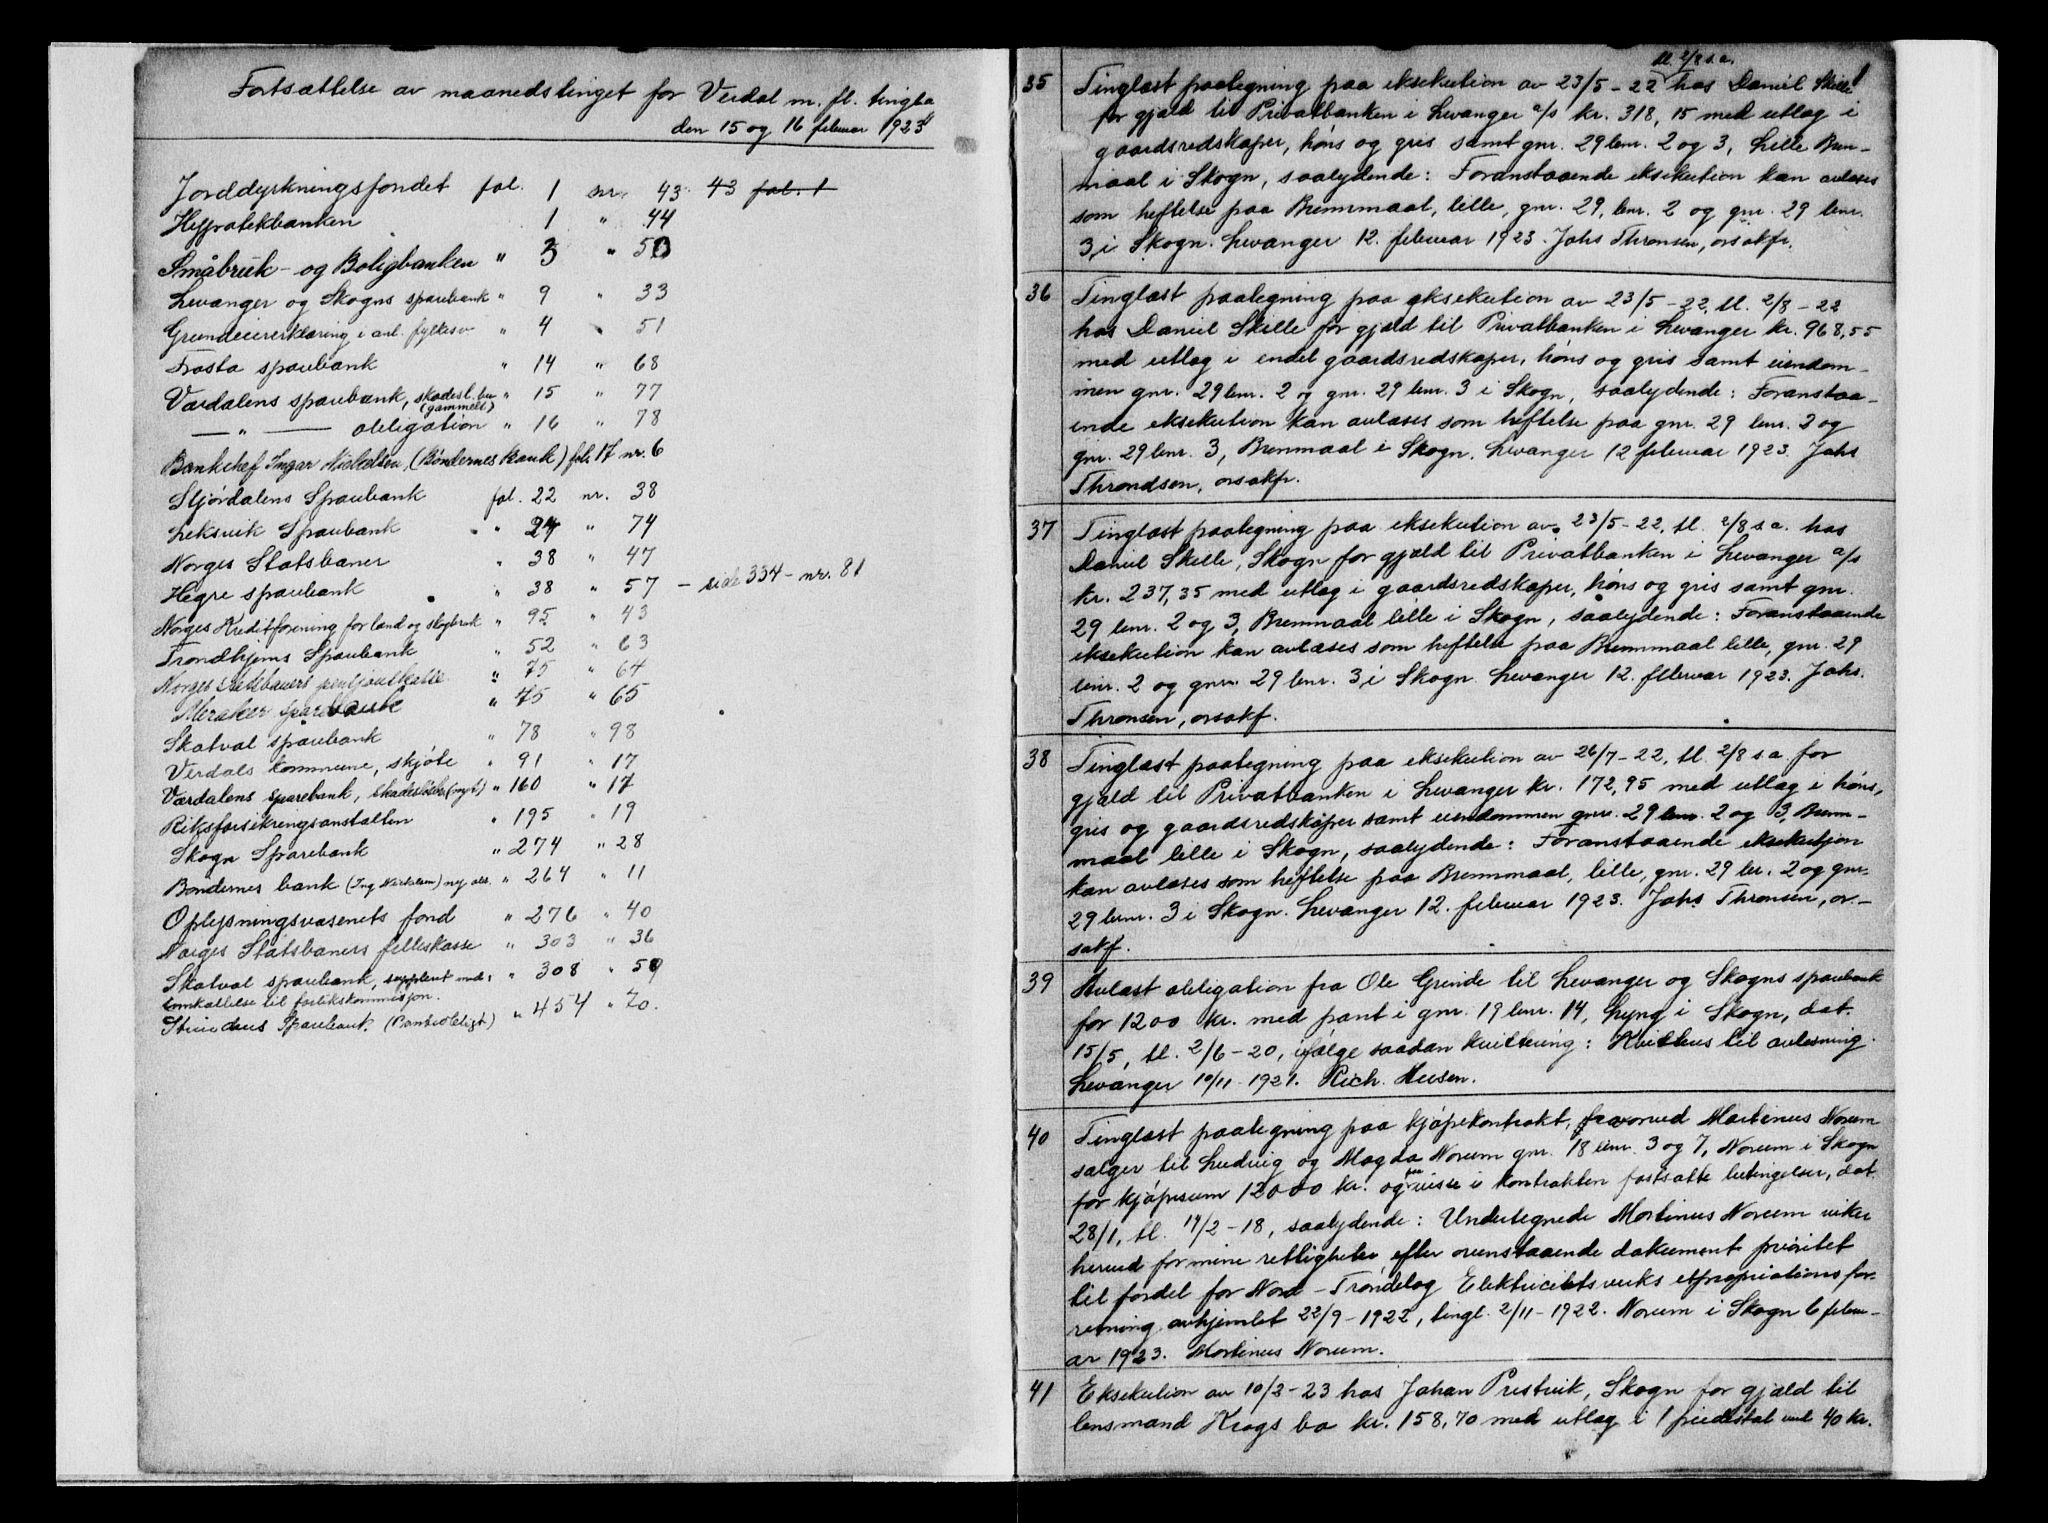 Fortsættelse av maanedstinget for Verdal m. fl. tinglag
den 15 og 16 februar 1923
Jorddyrkningsfondet fol. 1 nr. 43. 43 fol. 1
Hypotekbanken 1 " 44
Småbruk- og Boligbanken " 3 " 50
Levanger og Skogns sparebank " 9 " 33
Grundeiererklæring i anl. fylkesv " 4 " 51
Frosta sparebank " 14 " 68
Værdalens sparebank, skadesl. br. " 15 " 77
(gammelt)
— " — obligation " 16 " 78
Bankchef Ingar Nickelsen (Bøndernes Bank) fol. 17 nr. 6
Stjørdalens Sparebank fol. 22 nr. 38
Leksvik Sparebank " 24 " 74
Norges Statsbaner " 38 " 47
Hegre sparebank " 38 " 57 – side 334 – nr. 81
Norges Kreditforening for land og skogbruk " 95 " 43
Trondhjems Sparebank " 52 " 63
Norges Statsbaners pensjonskasse " 75 " 64
Meraker sparebank " 75 " 65
Skatval sparebank " 78 " 98
Verdals kommune, skjøte " 91 " 17
Værdalens sparebank, skadesløsbr (nyt) " 160 " 17
Riksforsikringsanstalten " 195 " 19
Skogn Sparebank " 274 " 28
Bøndernes bank (Ing. Nickelsen) ny obl. " 264 " 11
Oplysningsvæsenets fond " 276 " 40
Norges Statsbaners felleskasse " 303 " 36
Skatval sparebank, supplert med " 308 " 59
innkallelse til forlikskommisjon.
Strindens Sparebank. (Panteobligt) " 454 " 70.
tl. 2/8 s.a.
35 Tinglæst paategning paa eksekution av 23/5-22 hos Daniel Skille
for gjæld til Privatbanken i Levanger a/s kr. 318,15 med utlæg i
gaardsredskaper, høns og gris samt gnr. 29 bnr. 2 og 3, Lille Bren-
maal i Skogn, saalydende: Foranstaaende eksekution kan avlæses
som heftelse paa Brenmaal, lille, gnr. 29, bnr. 2 og gnr. 29 bnr.
3, i Skogn. Levanger 12. februar 1923. Johs Thronsen, orsakfr.
36 Tinglæst paategning paa eksekution av 23/5-22, tl. 2/8-22
hos Daniel Skille for gjæld til Privatbanken i Levanger kr. 968,55
med utlæg i endel gaardsredskaper, høns og gris samt eiendom-
men gnr. 29 bnr. 2 og gnr. 29 bnr. 3 i Skogn, saalydende: Foranstaa-
ende eksekution kan avlæses som heftelse paa gnr. 29 bnr. 2 og
gnr. 29 bnr. 3, Brenmaal i Skogn. Levanger 12 februar 1923. Johs
Throndsen, orsakfr.
37 Tinglæst paategning paa eksekution av 23/5-22, tl. 2/8 s.a. hos
Daniel Skille, Skogn for gjæld til Privatbanken i Levanger a/s
kr. 237,35 med utlæg i gaardsredskaper, høns og gris samt gnr.
29 bnr. 2 og 3, Brenmaal lille i Skogn, saalydende: Foranstaaende
eksekution kan avlæses som heftelse paa Brenmaal lille, gnr. 29
bnr. 2 og gnr. 29 bnr. 3, i Skogn. Levanger 12. februar 1923. Johs.
Thronsen, orsakf.
38 Tinglæst paategning paa eksekution av 26/7-22, tl. 2/8 s.a. for
gjæld til Privatbanken i Levanger kr. 172,95 med utlæg i høns,
gris og gaardsredskaper samt eiendommen gnr. 29 bnr. 2 og 3, Bren-
maal lille i Skogn, saalydende: Foranstaaende eksekusjon
kan avlæses som heftelse paa Brenmaal, lille, gnr. 29 br. 2 og gnr.
29 bnr. 3 i Skogn. Levanger 12. februar 1923. Johs Thronsen, or.-
sakf.
39 Avlæst obligation fra Ole Grinde til Levanger og Skogns sparebank
for 1200 kr. med pant i gnr. 19 bnr. 14, Lyng i Skogn, dat.
15/5, tl. 2/6-20, ifølge saadan kvittering: Kvitteres til avlesning.
Levanger 10/11-1921. Rich. Husen.
40 Tinglæst paategning paa kjøpekontrakt, hvorved Martinus Norum
sælger til Ludvig og Magda Norum gnr. 18 bnr. 3 og 7, Norum i Skogn
for kjøpesum 12000 kr. og paa visse i kontrakten fastsatte betingelser, dat.
28/1, tl. 14/2-18, saalydende: Undertegnede Martinus Norum viker
herved for mine rettigheter efter ovenstaaende dokument prioritet
til fordel for Nord-Trøndelag Elektricitetsverks ekspropriationsfor-
retning avhjemlet 22/9-1922, tingl. 2/11-1922. Norum i Skogn 6 febru-
ar 1923. Martinus Norum.
41 Eksekution av 10/2-23 hos Johan Prestvik, Skogn for gjæld til
lensmand Krogs bo kr. 158,70 med utlæg i 1 piedestal verd 40 kr.